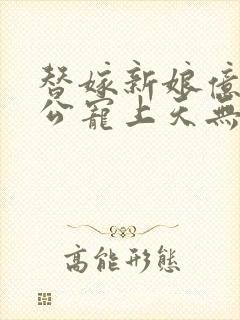 替嫁新娘億
公寵上天無
高能形態